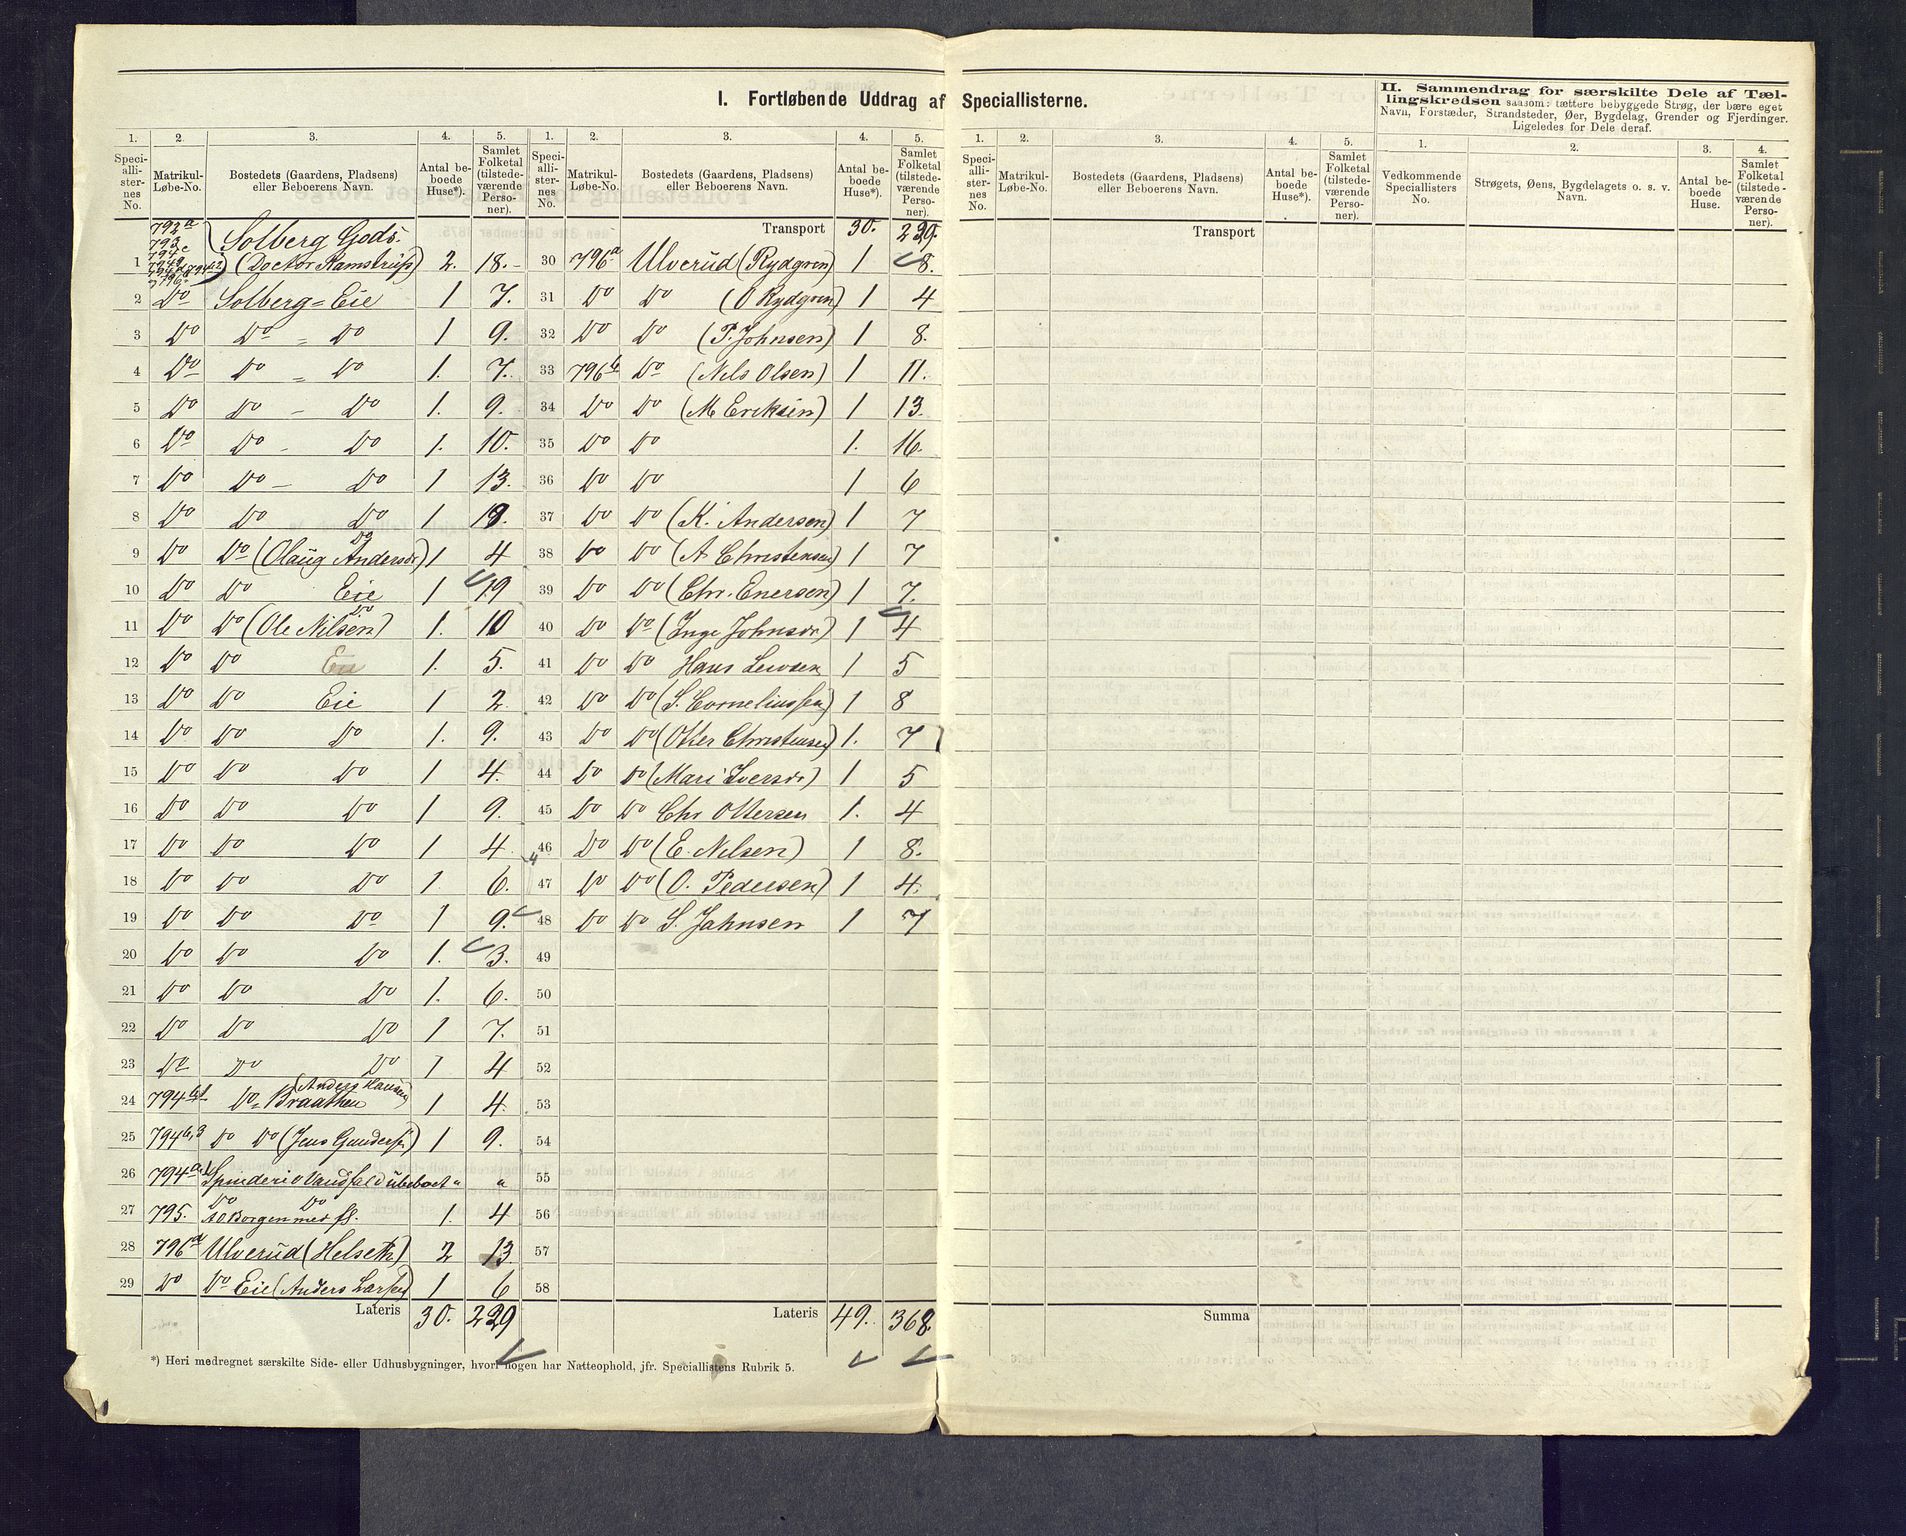 I. Fortløbende Uddrag af Speciallisterne.
II. Sammendrag for særskilte Dele af Tæl-
lingskredsen saasom: tættere bebyggede Strøg, der bære eget
Navn, Forstæder, Strandsteder, Øer, Bygdelag, Grender og Fjerdinger.
Ligeledes for Dele deraf.
1. 2. 3. 4. 5. 1. 2. 3. 4. 5. 1. 2. 3. 4. 5. 1. 2. 3. 4.
Speci-allister-nes No. Matrikul-Løbe-No. Bostedets (Gaardens, Pladsens) eller Beboerens Navn. Antal be-boede Huse*). Samlet Folketal (tilstede-værende Perso-ner).
Speci-allister-nes No. Matrikul-Løbe-No. Bostedets (Gaardens, Pladsens) eller Beboerens Navn. Antal be-boede Huse*). Samlet Folketal (tilstede-værende Perso-ner).
Speci-allister-nes No. Matrikul-Løbe-No. Bostedets (Gaardens, Pladsens) eller Beboerens Navn. Antal be-boede Huse*). Samlet Folketal (tilstede-værende Perso-ner).
Vedkommende Speciallisters No. Strøgets, Øens, Bygdelagets o. s. v. Navn. Antal be-boede Huse. Samlet Folketal (tilstede-værende Perso-ner).
793a
793c
794
Solberg Gods.
1 (Doctor Ramstrup) 2. 18.
2 Do Solberg=Eie 1 7.
3 Do Do = Do 1 9.
4 Do Do = Do 1. 7.
5 Do Do - Do 1. 9.
6 Do Do - Do 1. 10.
7 Do Do - Do 1 13.
8 Do Do Do 1 18.
9 Do Do (Olaug Andersdr) Do 1 4
10 Do Do Eie 1 19
11 Do Do (Ole Nilsen) Do 1. 10
12 Do Do Eie 1. 5.
13 Do Do Eie 1 2.
14 Do Do Do 1. 9.
15 Do Do Do 1 4.
16 Do Do Do 1 9.
17 Do Do Do 1 4
18 Do Do Do 1 6.
19 Do Do Do 1 9.
20 Do Do Do 1. 3.
21 Do Do Do 1. 6.
22 Do Do Do 1 7.
23 Do Do Do 1 4
24 794b1 Do Braathen (Anders Hansen) 1 4.
25 794b,3 Do Do (Jens Gundersen) 1 9.
26 794a Spinderi Vandfald ubeboet " "
27 795. Do Do AO Borgen med fl. 1. 4
28 796a Ulverud (Helseth) 2 13
29 Do Do Eie (Anders Larsen) 1 6
Lateris 30. 229
Transport 30. 229.
30 796a Ulverud (Rydgren) 1 8.
31 Do Do (O Rydgren) 1 4
32 Do Do (P. Johnsen) 1 8.
33 796b Do (Nils Olsen) 1 11.
34 Do Do (M Eriksen) 1 13.
35 Do Do 1. 16.
36 Do Do 1 6
37 Do Do (K. Andersen) 1 7
38 Do Do (A Christensen) 1 7
39 Do Do (Chr. Enersen) 1 7.
40 Do Do (Inge Johnsdr) 1 4
41 Do Do Hans 1 5
42 Do Do (S. Corneliussen) 1 8
43 Do Do (Otter Christensen) 1. 7
44 Do Do (Mari Iversdr) 1 5
45 Do Do Chr Ottersen 1. 4
46 Do Do (E. Nilsen) 1 8.
47 Do Do (O. Pedersen) 1 4.
48 Do Do S. Johnsen 1 7
49
50
51
52
53
54
55
56
57
58
Lateris 49. 368.
Transport
Summa
*) Heri medregnet særskilte Side- eller Udhusbygninger, hvori nogen har Natteophold, jfr. Speciallistens Rubrik 5.